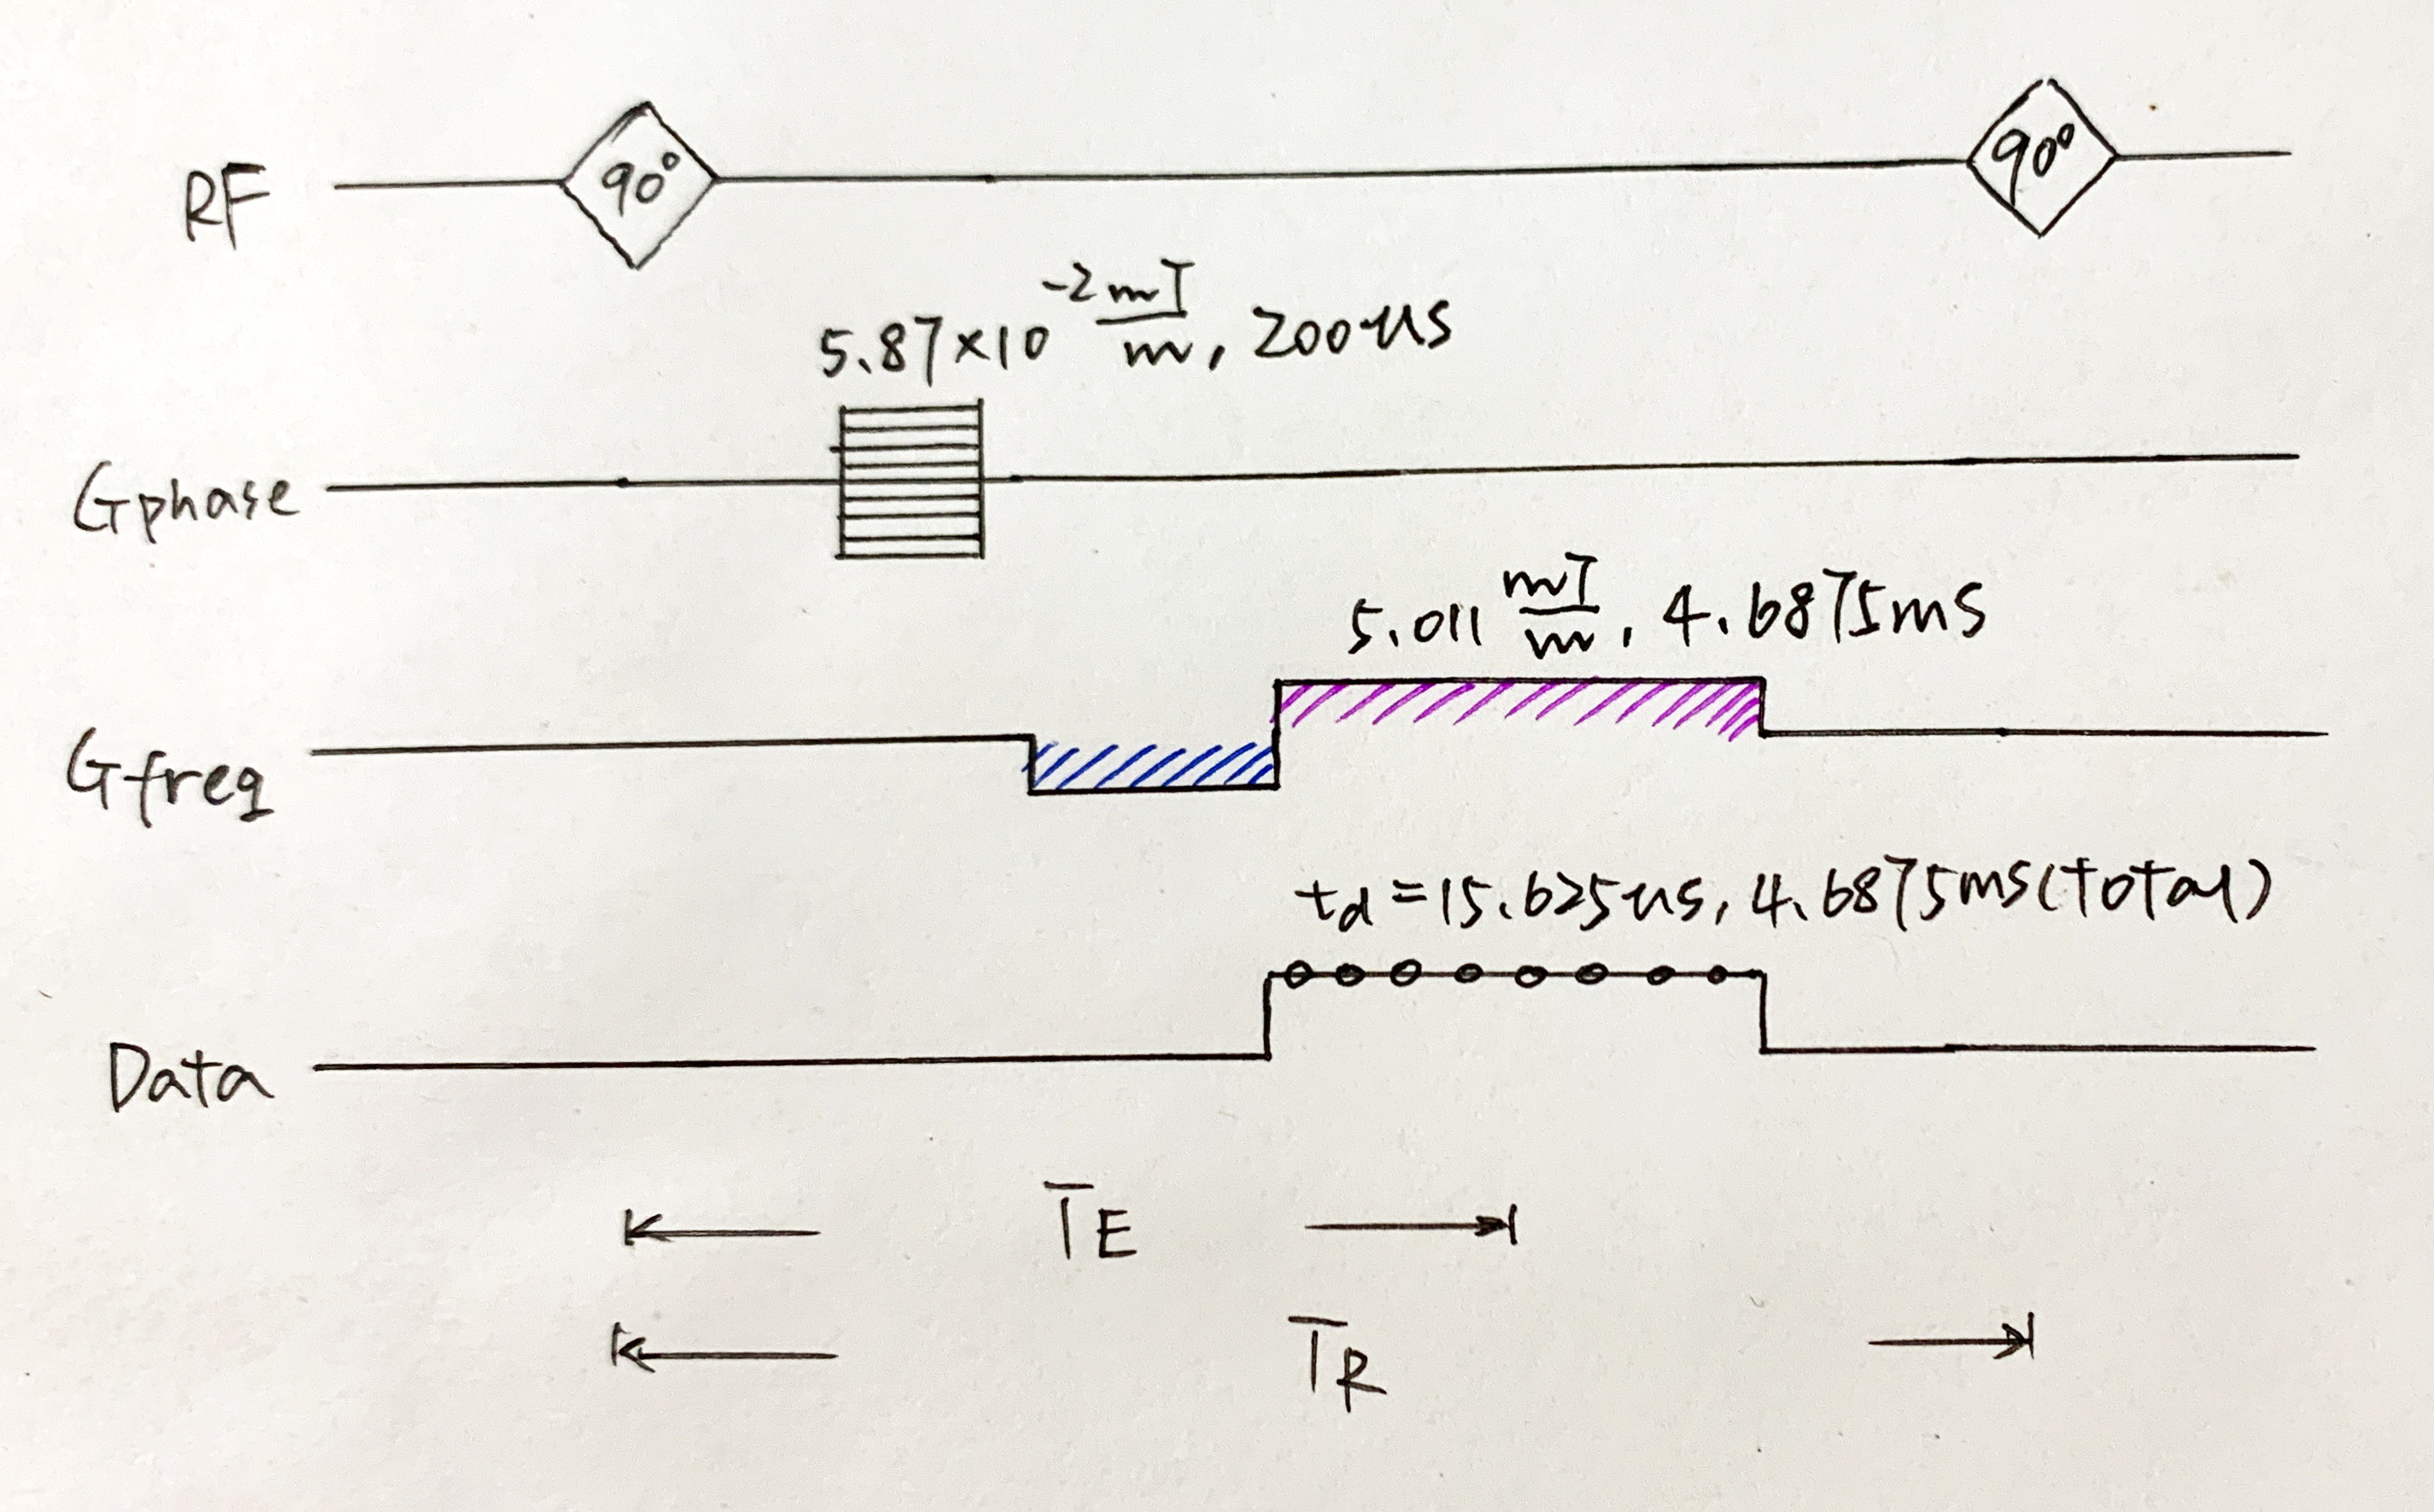 RF 90° 90°
5.87×10^-2 mT/m, 200us
Gphase
5.011 mT/m, 4.6875ms
Gfreq
td=15.625us, 4.6875ms(total)
Data
TE
TR